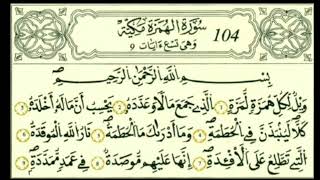 سُورَةُ الْهُمَزَةِ مَكِّيَّةٌ 104
وَهِيَ تِسْعُ آيَات 9
بِسْمِ اللَّهِ الرَّحْمَٰنِ الرَّحِيمِ
وَيْلٌ لِّكُلِّ هُمَزَةٍ لُّمَزَةٍ ١ الَّذِي جَمَعَ مَالًا وَعَدَّدَهُ ٢ يَحْسَبُ أَنَّ مَالَهُ أَخْلَدَهُ ٣
كَلَّا لَيُنبَذَنَّ فِي الْحُطَمَةِ ٤ وَمَا أَدْرَاكَ مَا الْحُطَمَةُ ٥ نَارُ اللَّهِ الْمُوقَدَةُ ٦
الَّتِي تَطَّلِعُ عَلَى الْأَفْئِدَةِ ٧ إِنَّهَا عَلَيْهِم مُّؤْصَدَةٌ ٨ فِي عَمَدٍ مُّمَدَّدَةٍ ٩